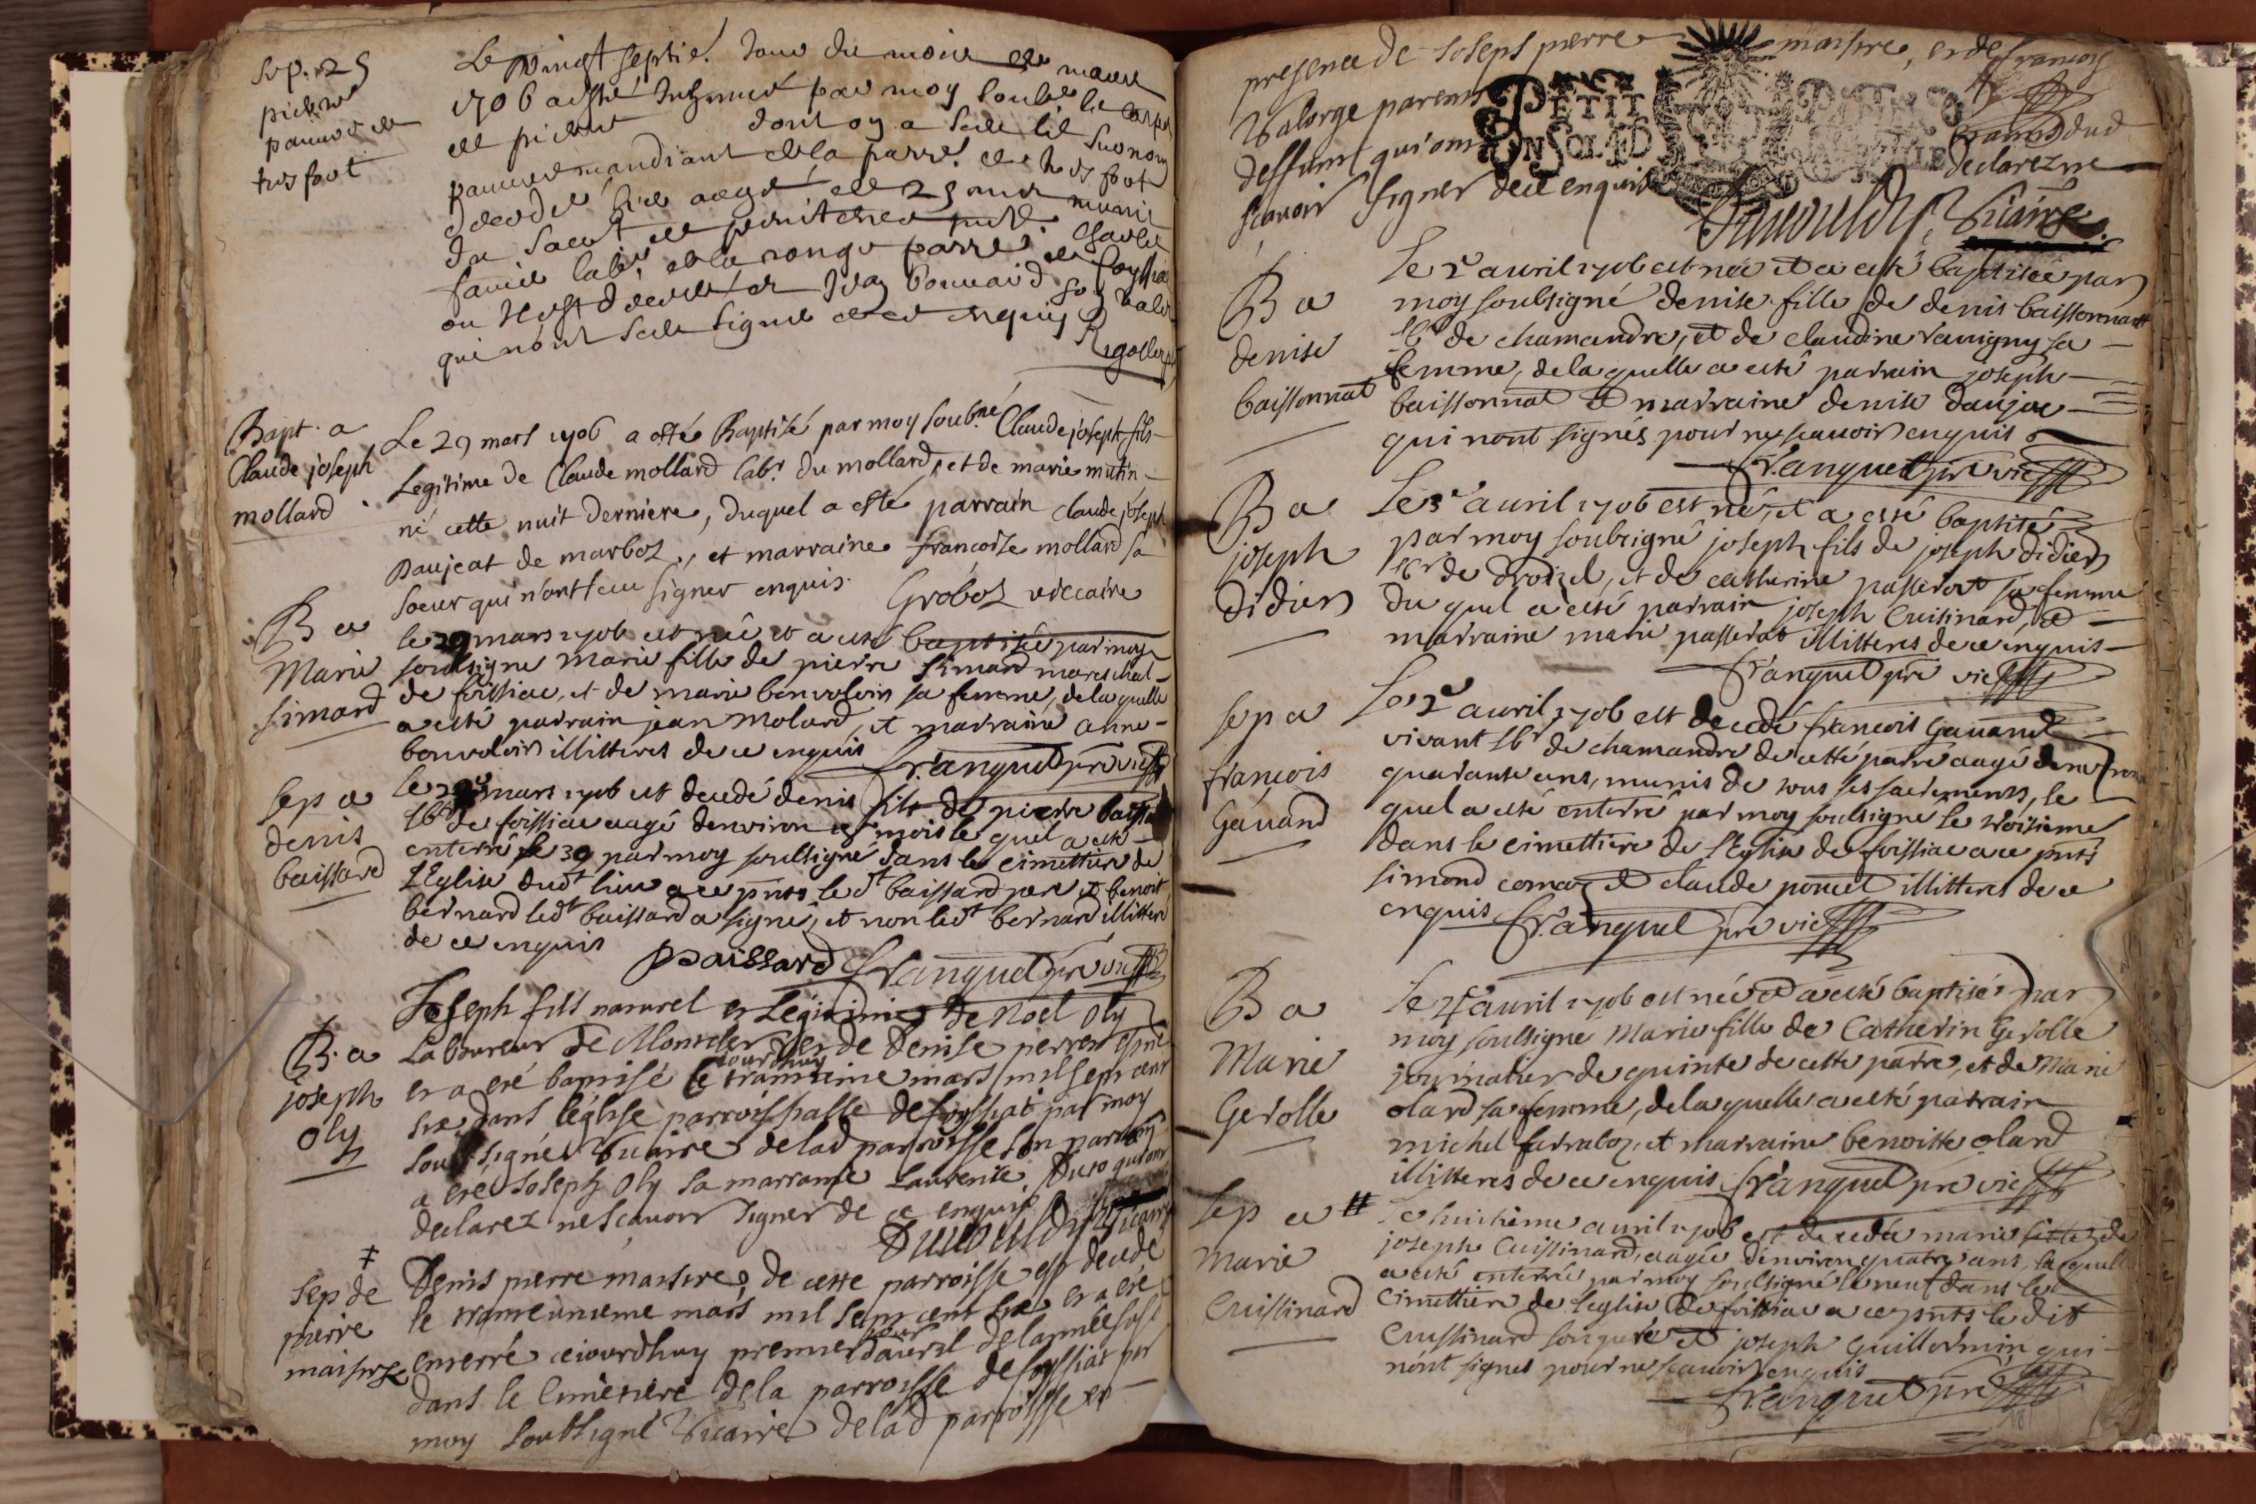 Sep. 25
pierre
pauvre de
tresfoot
Le vingt septie. Jour du mois de mars
1706 a esté Inhumé par moy soubs. le corps
de pierre dont on a sceu le surnom
pauvre mandiant de la parre. de
decedé hier aagé de 25 ans muni
du sacrt de penitence
qui n'ont sceu signer de ce enquis
Bapt. a
Claude joseph
mollard
Le 29 mars 1706 a esté Baptisé par moy soubné. Claude joseph fils
Legitime de Claude mollard labr. du mollard, et de marie mutin
né cette nuit derniere, duquel a esté parrain claude joseph
paujeat de marboz, et marraine francoise mollard sa
soeur qui n'ont sceu signer enquis. Groboz viccaire
B a
Marie
simard
le 29 mars 1706 est née et a esté baptisée par moy
soubsigné Marie fille de pierre simard mareschal
de foissiac, et de marie bonvoloir sa femme, de la quelle
a esté parrain jean Molard, et marraine anne
bonvoloir illitteres de ce enquis
franquet pre vic
Sep a
denis
baissard
le mars 1706 est decedé denis fils de pierre baissard
lbr de foissiac aagé denviron mois le quel a esté
enterré le 30 par moy soulsigné dans le cimettiere de
l'Eglise dudt lieu a ce pnts le dt baissard pere et benoit
bernard ledt baissard a signé, et non ledt bernard illittere
de ce enquis
Baissard franquet pre vic
B. a
joseph
Oly
Joseph fils naturel et Legitime de Noel Oly
Laboureur de Montcler et de Denise perret est né
et a eté baptisé le jourdhuy trantieme mars mil sept cent
six dans léglise parroissialle de foyssiat par moy
soubsigné Vicaire de lad parroisse son parrain
a eté Joseph Oly sa marraine Laurence Duro qui ont
declarez ne scavoir signer de ce enquis
Vicaire
‡
Sep de
pierre
maistre
Denis pierre maistre, de cette parroisse est decedé
le tranteunieme mars mil sept cent six et a eté
enterré ce iourdhuy premier jour d'avril de lannée susd
dans le Cimetiere de la parroisse de foyssiat par
moy soubsigné Vicaire de lad parroisse en
presence de Joseph pierre maistre, et de francois
Valorge parens dud
deffunt qui ont declarez ne
scavoir signer de ce enquis
Vicaire
PETIT PAPIER
UN SOL 4D
B a
denise
baissonnat
Le 2e auril 1706 est née et a esté baptisée par
moy soulsigné denise fille de denis baissonnat
lbr de chamandre, et de claudine ravigny sa
femme, de la quelle a esté parrain joseph
baissonnat et marraine denise daujat
qui n'ont signés pour ne scauoir enquis
franquet pre vic
B a
joseph
didier
Le 3e auril 1706 est né, et a esté baptisé
par moy soubsigné joseph fils de joseph didier
lbr de et de catherine passerat sa femme
du quel a esté parrain joseph Cuisinard, et
marraine marie passerat illitteres de ce enquis
franquet pre vic
Sep a
francois
Gauand
Le 2e auril 1706 est decedé francois Gauand
vivant lbr de chamandre de cette parre aagé denviron
quarante ans, munis de tous ses sacrements, le
quel a esté enterré par moy soulsigné le troisieme
dans le cimettiere de l'Eglise de foissiac a ce pnts
simond comoz et claude poncet illitteres de ce
enquis franquet pre vic
B a
Marie
Gerolle
Le 4e auril 1706 est née et a esté baptisée par
moy soulsigné Marie fille de Catherin Gerolle
journalier de quinte de cette parre, et de Marie
olard sa femme, de la quelle a esté parrain
michel ferraloz, et marraine benoitte olard
illitteres de ce enquis franquet pre vic
Sep a #
Marie
Cuissinard
Le huitieme auril 1706 est decedée marie fille de
joseph Cuissinard, aagée denviron quatre ans, la quelle
a esté enterrée par moy soulsigné le neuf dans le
Cimettiere de leglise de foissiac a ce pnts le dit
Cuissinard son pere et joseph Guillermin qui
n'ont signes pour ne scauoir enquis
franquet pre